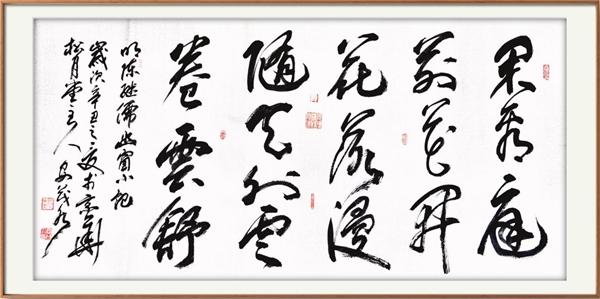 閑看庭
前花開
花落漫
隨天外雲
卷雲舒
明陳继儒幽窗小記
歲次辛丑之夏於
松月堂主人